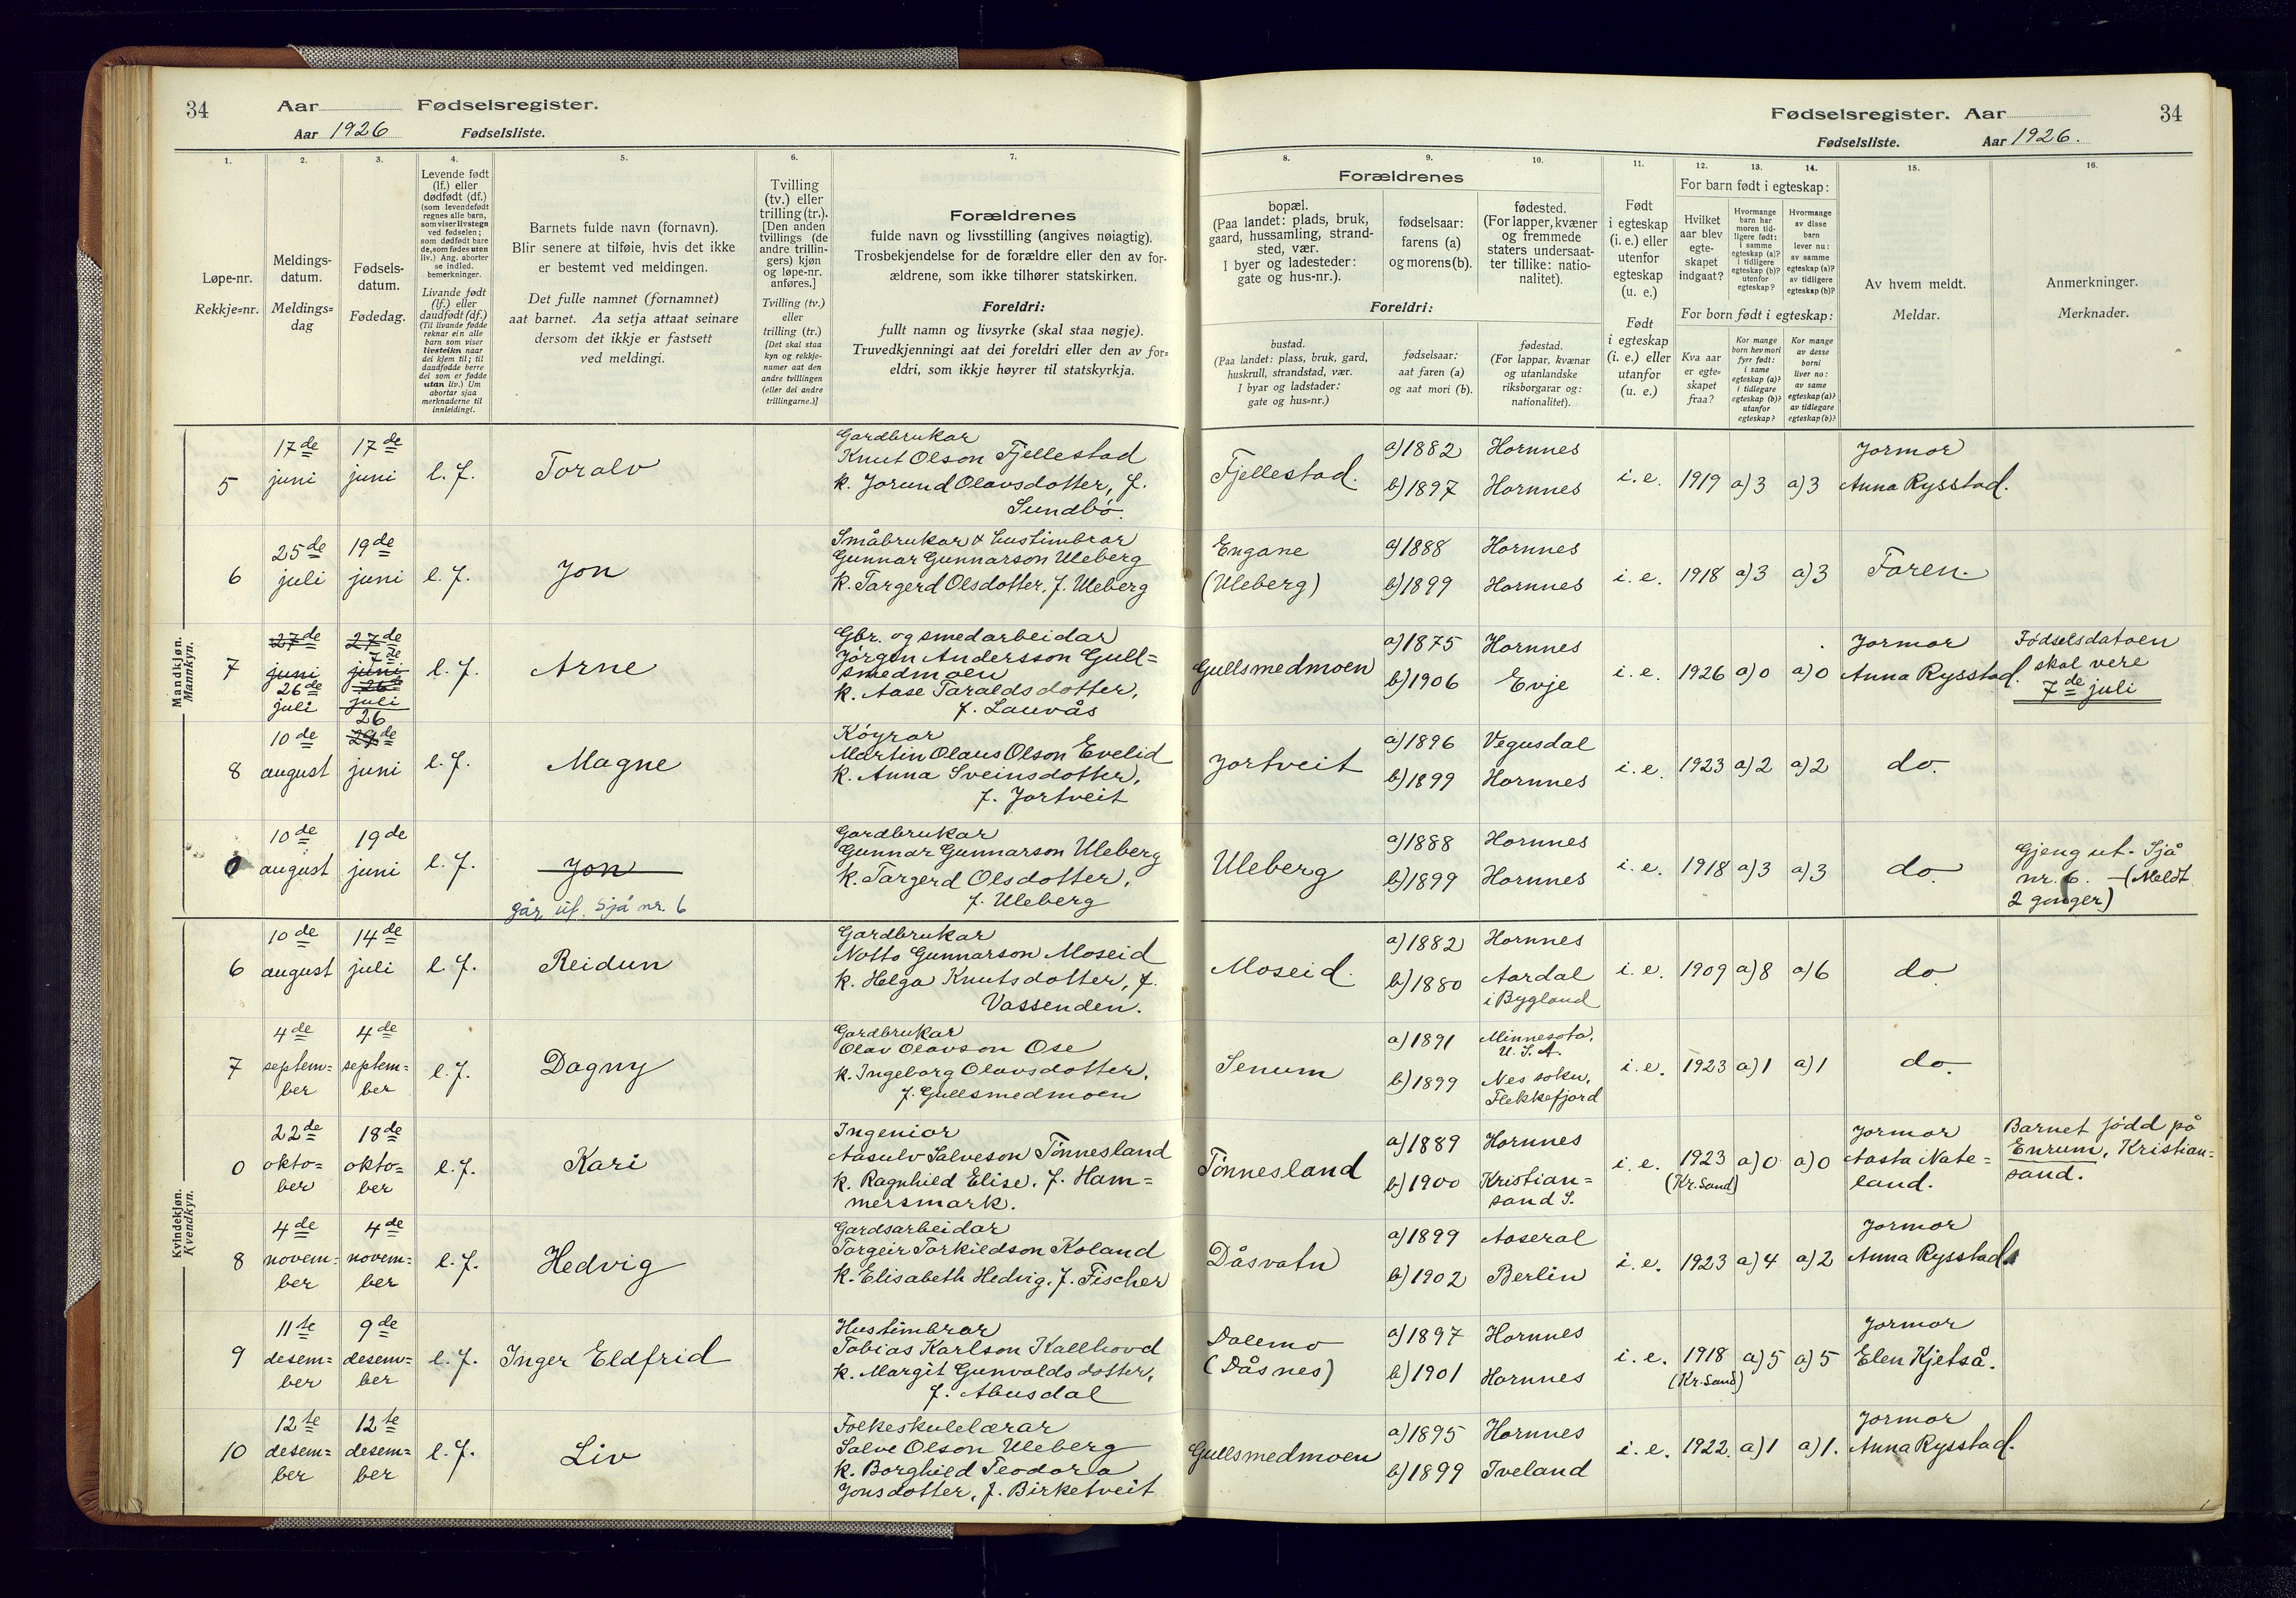 34 Aar Fødselsregister.
Aar 1926 Fødselsliste.
Fødselsregister. Aar 34
Fødselsliste. Aar 1926.
1. 2. 3. 4. 5. 6. 7.
Løpe-nr.
Rekkje=nr.
Meldings-
datum.
Meldings=
dag
Fødsels-
datum.
Fødedag.
Levende født
(lf.) eller
dødfødt (df.)
(som levendefødt
regnes alle barn,
som viser livstegn
ved fødselen;
som dødfødt bare
de, som fødes uten
liv.) Ang. aborter
se indled.
bemerkninger.
Livande født
(lf.) eller
daudfødt (df.)
(Til livande fødde
reknar ein alle
barn som viser
livsteikn naar
dei kjem til; til
daudfødde berre
dei som er fødde
utan liv.) Um
abortar sjaa
merknaderne til
innleidingi.
Barnets fulde navn (fornavn).
Blir senere at tilføie, hvis det ikke
er bestemt ved meldingen.
Det fulle namnet (fornamnet)
aat barnet. Aa setja attaat seinare
dersom det ikkje er fastsett
ved meldingi.
Tvilling
(tv.) eller
trilling (tr.).
[Den anden
tvillings (de
andre trillin-
gers) kjøn
og løpe-nr.
anføres.]
Tvilling (tv.)
eller
trilling (tr.)
[Det skal staa
kyn og rekkje-
numer aat den
andre tvillingen
(eller dei andre
trillingarne.)]
Forældrenes
fulde navn og livsstilling (angives nøiagtig).
Trosbekjendelse for de forældre eller den av for-
ældrene, som ikke tilhører statskirken.
Foreldri:
fullt namn og livsyrke (skal staa nøgje).
Truvedkjenningi aat dei foreldri eller den av for=
eldri, som ikkje høyrer til statskyrkja.
8. 9. 10. 11. 12. 13. 14. 15. 16.
Forældrenes
bopæl.
(Paa landet: plads, bruk,
gaard, hussamling, strand-
sted, vær.
I byer og ladesteder:
gate og hus-nr.).
fødselsaar:
farens (a)
og morens (b).
fødested.
(For lapper, kvæner
og fremmede
staters undersaat-
ter tillike: natio-
nalitet).
Foreldri:
bustad.
(Paa landet: plass, bruk, gard,
huskrull, strandstad, vær.
I byar og ladstader:
gate og hus=nr.)
fødselsaar:
aat faren (a)
og aat mori (b).
fødestad.
(For lappar, kvænar
og utanlandske
riksborgarar og:
nationalitet).
Født
i egteskap
(i. e.) eller
utenfor
egteskap
(u. e.)
Født
i egteskap
(i. e.) eller
utanfor
(u. e.)
For barn født i egteskap:
Hvilket
aar blev
egte-
skapet
indgaat?
Hvormange
barn har
moren tid-
ligere født:
i samme
egteskap (a)?
i tidligere
egteskap (b)?
utenfor
egteskap?
Hvormange
av disse
barn
lever nu:
av samme
egteskap (a)?
av tidligere
egteskap (b)?
For born født i egteskap:
Kva aar
er egte=
skapet
fraa?
Kor mange
born hev mori
fyrr født:
i same
egteskap (a)?
i tidlegare
egteskap (b)?
utanfor
egteskap?
Kor mange
av desse
borni
liver no:
av same
egteskap (a)?
av tidlegare
egteskap (b)?
Av hvem meldt.
Meldar.
Anmerkninger.
Merknader.
Mandkjøn.
Mannkyn.
5 17de juni 17de juni l. f. Toralv
Gardbrukar
Knut Olson Fjellestad
k. Jorund Olavsdotter, f.
Sundbø.
Fjellestad. a) 1882 Hornnes
b) 1897 Hornnes
i. e. 1919 a) 3 a) 3
Jormor
Anna Rysstad.
6 25de juli 19de juni l. f. Jon
Småbrukar & hustimbrar
Gunnar Gunnarson Uleberg
k. Targerd Olsdotter, f. Uleberg
Engane
(Uleberg)
a) 1888 Hornnes
b) 1899 Hornnes
i. e. 1918 a) 3 a) 3 Faren.
7 27de juni 26de juli
27de 7de juni 26de juli
l. f. Arne
Gbr. og smedarbeidar
Jørgen Andersson Gull=
smedmoen
k. Aase Taraldsdotter,
f. Lauvås
Gullsmedmoen a) 1875 Hornnes
b) 1906 Evje
i. e. 1926 a) 0 a) 0
Jormor
Anna Rysstad.
Fødselsdatoen
skal vere
7de juli
8 10de august 26 29de juni l. f. Magne
Køyrar
Martin Olaus Olson Evelid
k. Anna Sveinsdotter,
f. Jortveit
Jortveit a) 1896 Vegusdal
b) 1899 Hornnes
i. e. 1923 a) 2 a) 2 do.
0 10de august 19de juni l. f. Jon
går ut. Sjå nr. 6
Gardbrukar
Gunnar Gunnarson Uleberg
k. Targerd Olsdotter,
f. Uleberg
Uleberg a) 1888 Hornnes
b) 1899 Hornnes
i. e. 1918 a) 3 a) 3 do.
Gjeng ut. Sjå
nr. 6. - (Meldt
2 gonger)
Kvindekjøn.
Kvendkyn.
6 10de august 14de juli l. f. Reidun
Gardbrukar
Notto Gunnarson Moseid
k. Helga Knutsdotter, f.
Vassenden.
Moseid. a) 1882 Hornnes
b) 1880 Aardal
i Bygland
i. e. 1909 a) 8 a) 6 do.
7 4de septem=ber 4de septem=ber l. f. Dagny
Gardbrukar
Olav Olavson Ose
k. Ingeborg Olavsdotter,
f. Gullsmedmoen
Senum a) 1891 Minnesota,
U. S. A.
b) 1899 Nes sokn,
Flekkefjord
i. e. 1923 a) 1 a) 1 do.
0 22de okto=ber 18de okto=ber l. f. Kari
Ingeniør
Aasulv Salveson Tønnesland
k. Ragnhild Elise, f. Ham=
mersmark.
Tønnesland a) 1889 Hornnes
b) 1900 Kristian=
sand S.
i. e. 1923 (Kr.sand) a) 0 a) 0
Jormor
Aasta Nate=
land.
Barnet født på
Enrum, Kristian=
sand.
8 4de novem=ber 4de novem=ber l. f. Hedvig
Gardsarbeidar
Targeir Torkieldson Koland
k. Elisabeth Hedvig, f. Fischer
Dåsvatn a) 1899 Aaseral
b) 1902 Berlin
i. e. 1923 a) 4 a) 2
Jormor
Anna Rysstad
9 11te desem=ber 9de desem=ber l. f. Inger Eldfrid
Hustimbrar
Tobias Karlson Kallhovd
k. Margit Gunvaldsdotter,
f. Abusdal
Dalemo
(Dåsnes)
a) 1897 Hornnes
b) 1901 Hornnes
i. e. 1918 (Kr.sand) a) 5 a) 5
Jormor
Elen Kjetså.
10 12te desem=ber 12te desem=ber l. f. Liv
Folkeskulelærar
Salve Olson Uleberg
k. Borghild Teodora
Jonsdotter, f. Birketveit
Gullsmedmoen a) 1895 Hornnes
b) 1899 Iveland
i. e. 1922. a) 1 a) 1.
Jormor
Anna Rysstad.